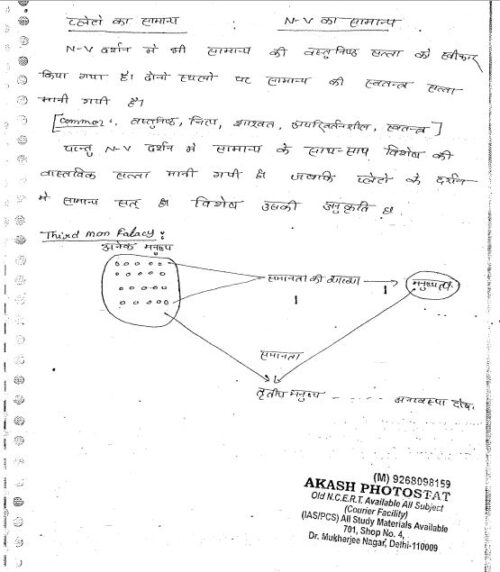 प्लेटो का सामान्य : N-V का सामान्य
N-V दर्शन में भी सामान्य की वस्तुनिष्ठ सत्ता को स्वीकार
किया गया है। दोनों स्थलों पर सामान्य की स्वतन्त्र सत्ता
मानी गयी है।
[Common: वस्तुनिष्ठ, नित्य, शाश्वत, अपरिवर्तनशील, स्वतन्त्र]
परन्तु N-V दर्शन में सामान्य के साथ-साथ विशेष की
वास्तविक सत्ता मानी गयी है। जबकि प्लेटो के दर्शन
में सामान्य सत् है। विशेष उसकी अनुकृति है।
Third man Falacy:
अनेक मनुष्य
समानता की व्याख्या
मनुष्यत्व
समानता
तृतीय मनुष्य ---- अनावस्था दोष.
(M) 9268098159
AKASH PHOTOSTAT
Old N.C.E.R.T. Available All Subject
(Courier Facility)
(IAS/PCS) All Study Materials Available
701, Shop No. 4,
Dr. Mukherjee Nagar, Delhi-110009